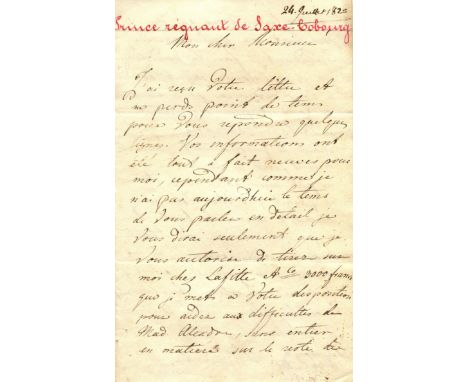 24 Juillet 182
Prince régnant de Saxe-Cobourg
Mon cher Monsieur
J'ai reçu Votre lettre et
ne perds point de tems
pour Vous repondre quelques
lignes. Vos informations ont
été tout à fait neuves pour
moi, cependant comme je
n'ai pas aujourdhui le tems
de Vous parler en detail je
Vous dirai seulement que je
Vous autorise de tirer sur
moi chez Lafitte & Co 3000 francs
que je mets à Votre disposition
pour aider aux difficultes de
Mad , sans entrer
en matiere sur le reste de